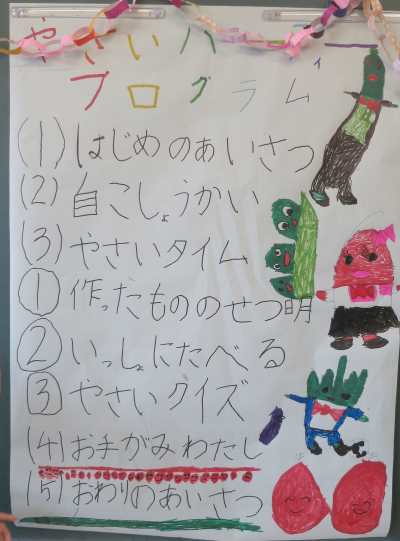 やさいパーティー
プログラム
(1) はじめのあいさつ
(2) 自こしょうかい
(3) やさいタイム
① 作ったもののせつ明
② いっしょにたべる
③ やさいクイズ
(4) お手がみわたし
(5) おわりのあいさつ